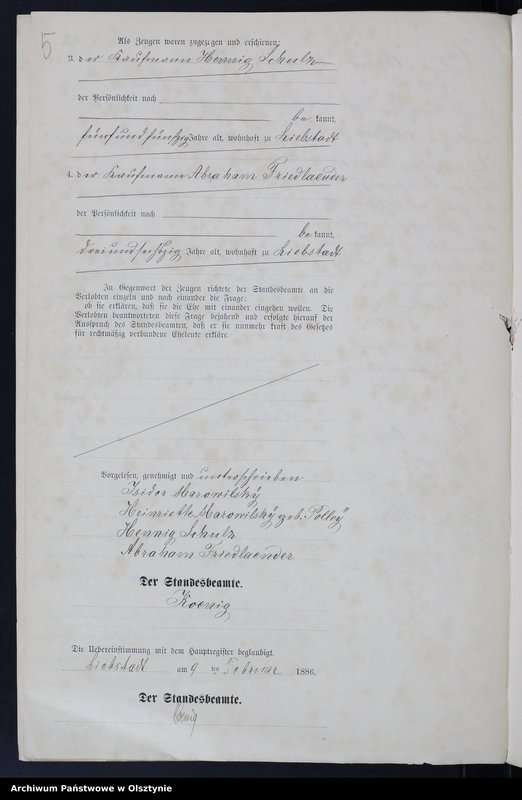 5
Als Zeugen waren zugezogen und erschienen:
3. der Kaufmann Hennig Schulz
der Persönlichkeit nach
be kannt,
fünfundfünfzig Jahre alt, wohnhaft zu Liebstadt
4. der Kaufmann Abraham Friedlaender
der Persönlichkeit nach
be kannt,
dreiundsechszig Jahre alt, wohnhaft zu Liebstadt
In Gegenwart der Zeugen richtete der Standesbeamte an die
Verlobten einzeln und nach einander die Frage:
ob sie erklären, daß sie die Ehe mit einander eingehen wollen. Die
Verlobten beantworteten diese Frage bejahend und erfolgte hierauf der
Ausspruch des Standesbeamten, daß er sie nunmehr kraft des Gesetzes
für rechtmäßig verbundene Eheleute erkläre.
Vorgelesen, genehmigt und unterschrieben
Isidor Marowilsky
Henriette Marowilsky geb. Polley
Hennig Schulz
Abraham Friedlaender
Der Standesbeamte.
Koenig
Die Uebereinstimmung mit dem Hauptregister beglaubigt.
Liebstadt am 9 ten Februar 1886.
Der Standesbeamte.
Koenig
Archiwum Państwowe w Olsztynie